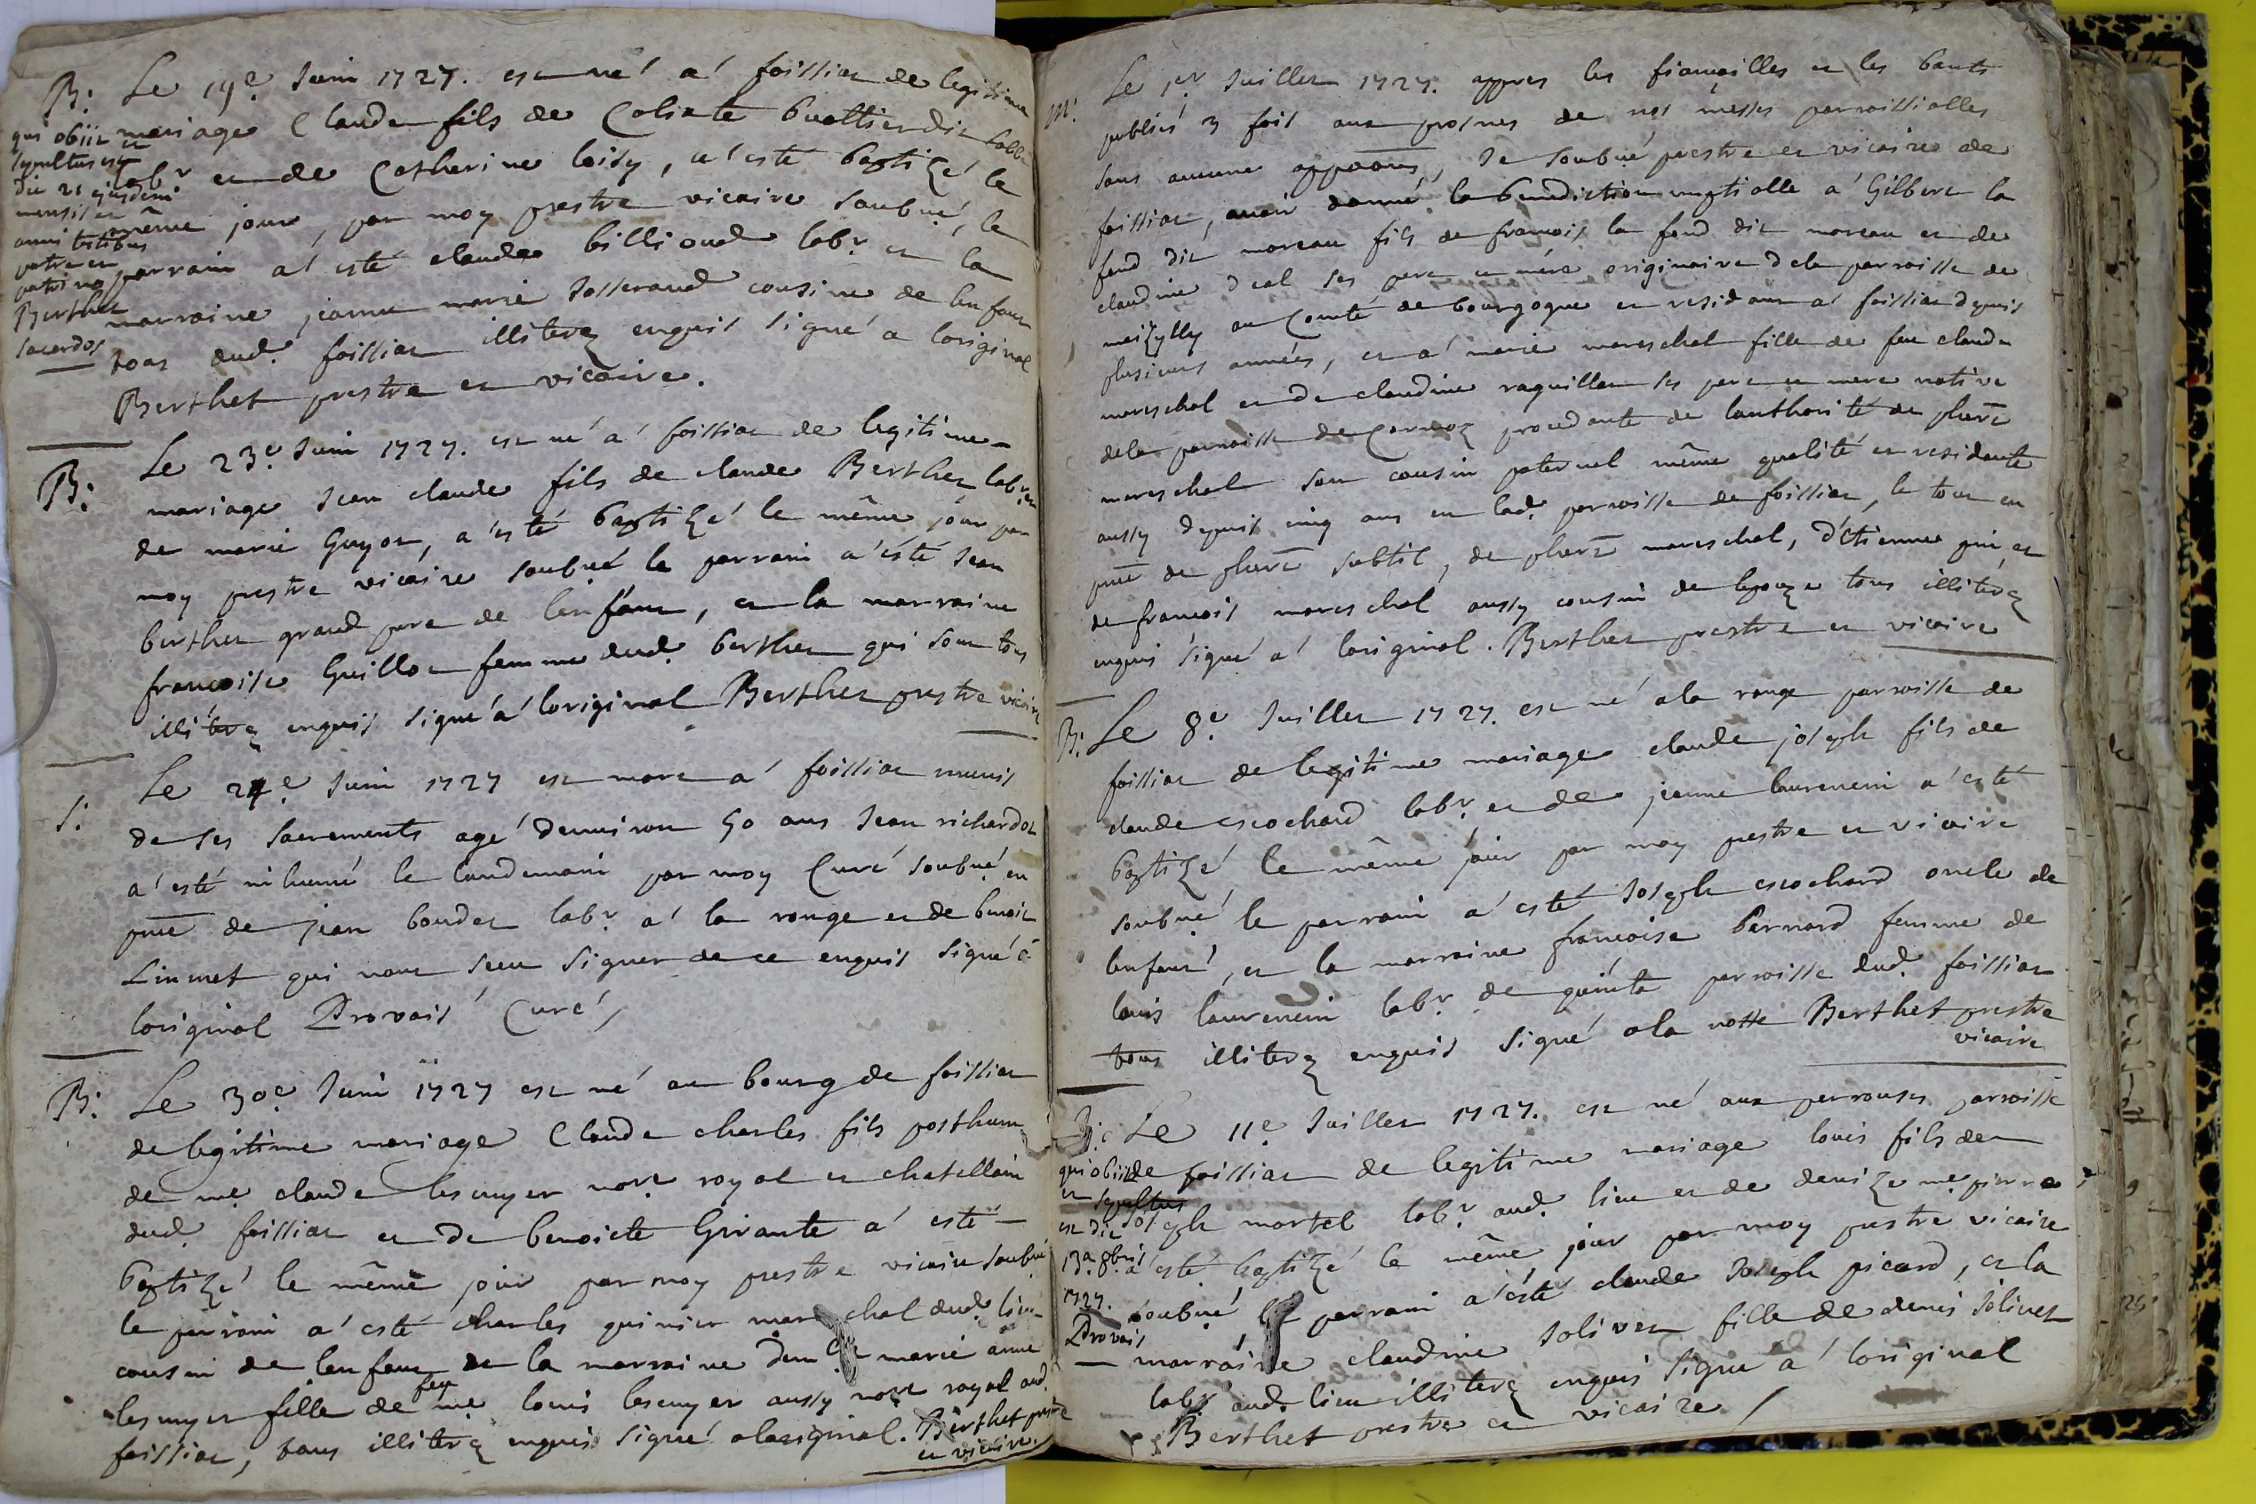 B: Le 19e Juin 1727. est né a foissiat de legitime
mariage Claude fils de Coliate buottier dit
labr et de Catherine loisy, a esté baptizé le
même jour, par moy prestre vicaire soubné, le
parrain a esté claude billioud labr et la
marraine jeanne marie Josserand cousine de lenfant
tous dud. foissiat illiterez enquis signé a loriginal
Berthet prestre et vicaire.
qui obiit et
sepultus est
die 21 ejusdem
mensis et
anni testibus
patre et
patrino
Berthet
sacerdos
B: Le 23e Juin 1727. est né a foissiat de legitime
mariage Jean claude fils de claude Berthet labr et
de marie Guyot, a esté baptizé le même jour par
moy prestre vicaire soubné le parrain a esté Jean
berthet grand pere de lenfant, et la marraine
francoise Guillot femme dud. berthet qui sont tous
illiterez enquis signé a loriginal Berthet prestre vicaire
S. Le 24e Juin 1727 est mort a foissiat munis
de ses sacrements agé denviron 50 ans Jean richardot
a esté inhumé le landemain par moy Curé soubné en
pnce de jean boudet labr a la ronge et de benoit
Linmet qui nont sceu signer de ce enquis signé a
loriginal Provais Curé
B: Le 30e Juin 1727 est né au bourg de foissiat
de legitime mariage Claude charles fils posthume
de me claude lescuyer nore royal et chatellain
dud. foissiat et de benoicte Girante a esté
baptizé le même jour par moy prestre vicaire soubné
le parrain a esté charles quinier marechal dud. lieu
cousin de lenfant et la marraine marie anne
lescuyer fille de feu me louis lescuyer aussy nore royal aud.
foissiat, tous illiterez enquis signé a loriginal. Berthet prestre
et vicaire.
M: Le 1er Juillet 1727. appres les fiancailles et les bants
publiés 3 fois aux prosnes de nos messes parroissialles
sans aucune opp[osit]ions, Je soubné prestre et vicaire de
foissiat, avoir donné la benediction nuptialle a Gilbert la
fond dit moreau fils de francois la fond dit moreau et de
claudine deal ses pere et mere originaire de la parroisse de
meizylly au Comté de bourgogne et residant a foissiat depuis
plusieurs années, et a marie mareschal fille de feu claude
mareschal et de claudine raquillet ses pere et mere native
de la parroisse de Cormoz procedante de lauthorité de phert
mareschal son cousin paternel même qualité et residante
aussy depuis cinq ans en lad. parroisse de foissiat, le tout en
pnce de phert subtil, de phert mareschal, d'étienne pin, et
de francois mareschal aussy cousin de lepouze tous illiterez
enquis signé a loriginal. Berthet prestre et vicaire
B: Le 8e Juillet 1727. est né a la ronge parroisse de
foissiat de legitime mariage claude joseph fils de
claude escochard labr et de jeanne laurencin a esté
baptizé le même jour par moy prestre et vicaire
soubné le parrain a esté Joseph escochard oncle de
lenfant, et la marraine francoise bernard femme de
louis laurencin labr de quinte parroisse dud. foissiat
tous illiterez enquis signé a la notte Berthet prestre
vicaire
B: Le 11e Juillet 1727. est né aux perrouses parroisse
de foissiat de legitime mariage louis fils de
Joseph martel labr aud. lieu et de denize me pierre
a esté baptizé le même jour par moy prestre vicaire
soubné, le parrain a esté claude Joseph picard, et la
marraine claudine Jolivet fille de denis Jolivet
labr aud. lieu illiterez enquis signé a loriginal
Berthet prestre et vicaire
qui obiit
et sepultus
est die
13a 8bris
1727.
Provais